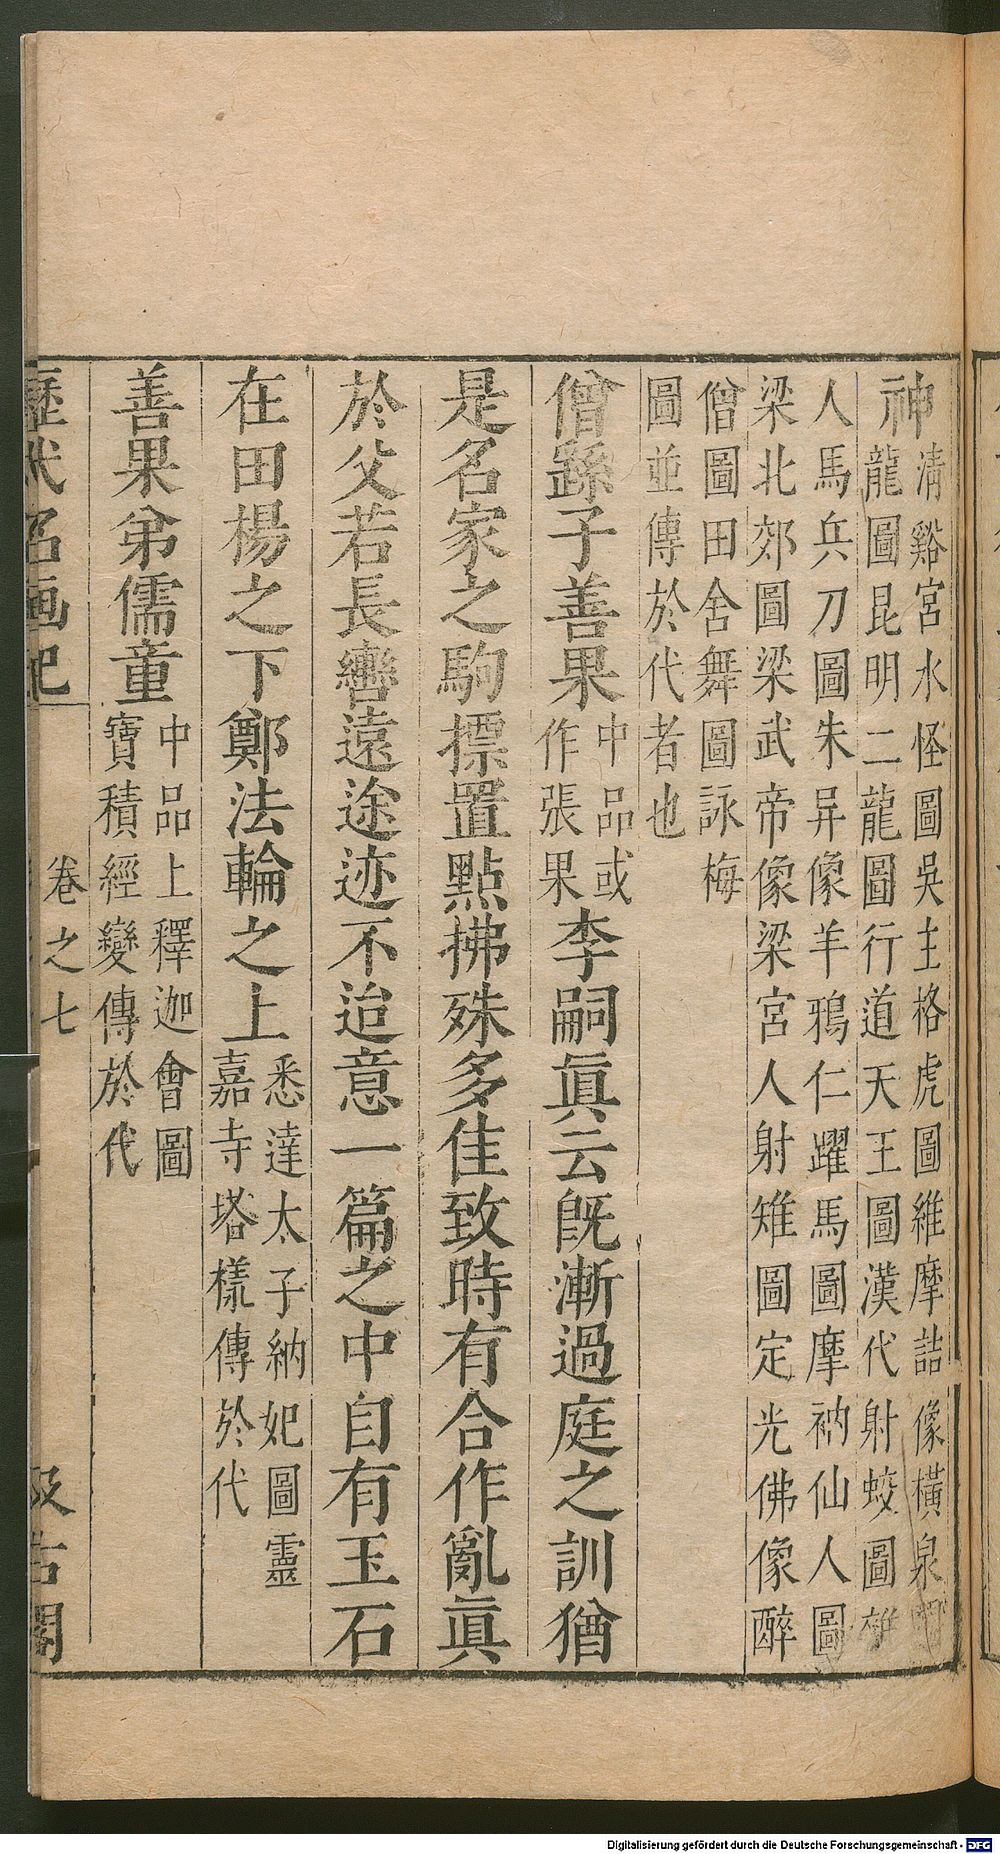 神清谿宮水怪圖吳主格虎圖維摩詰像橫泉鬭
龍圖昆明二龍圖行道天王圖漢代射蛟圖雜
人馬兵刀圖朱异像羊鴉仁躍馬圖摩衲仙人圖
梁北郊圖梁武帝像梁宮人射雉圖定光佛像醉
僧圖田舍舞圖詠梅
圖並傳於代者也
僧繇子善果中品或作張果李嗣眞云旣漸過庭之訓猶
是名家之駒摽置點拂殊多佳致時有合作亂眞
於父若長轡遠途迹不迨意一篇之中自有玉石
在田楊之下鄭法輪之上悉達太子納妃圖靈嘉寺塔樣傳於代
善果弟儒童中品上釋迦會圖寶積經變傳於代
歷代名畫記 卷之七 汲古閣
Digitalisierung gefördert durch die Deutsche Forschungsgemeinschaft - DFG